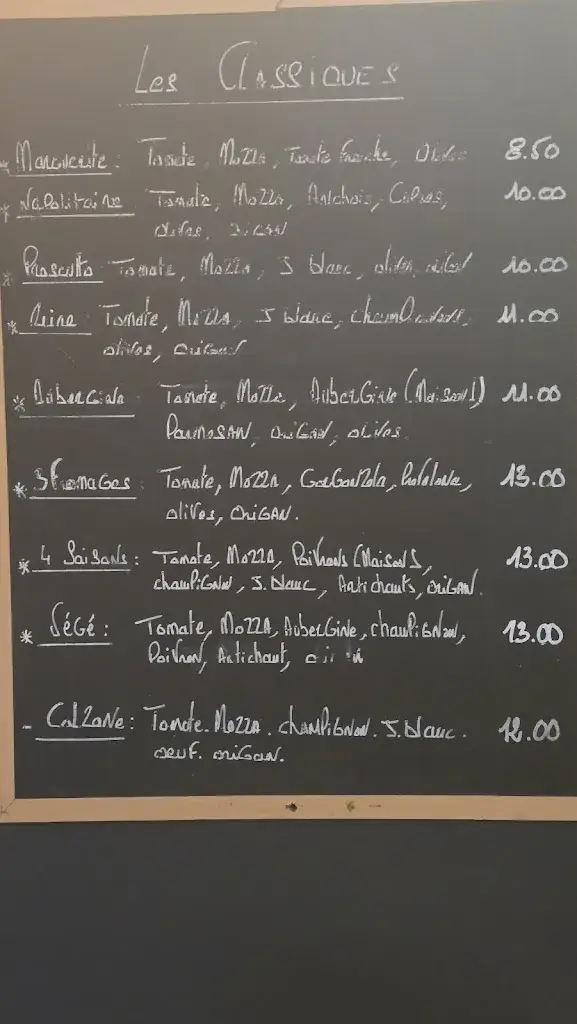 Les Classiques
* Marguerite : Tomate, Mozza, Tomate Fraiche, Olives 8.50
* Napolitaine Tomate, Mozza, Anchois, Câpres, 10.00
olives, origan
* Proscutto Tomate, Mozza, J. blanc, olives, origan 10.00
* Reine : Tomate, Mozza, J. blanc, champignons, 11.00
olives, origan
* Aubergine Tomate, Mozza, Aubergine (Maison) 11.00
Parmesan, origan, olives.
* 3 Fromages : Tomate, Mozza, Gorgonzola, Provolone, 13.00
olives, origan.
* 4 Saisons : Tomate, Mozza, Poivrons (Maison), 13.00
champignon, J. blanc, Artichauts, origan.
* Végé : Tomate, Mozza, Aubergine, champignon, 13.00
Poivron, Artichaut,
- Calzone : Tomate. Mozza. champignon. J. blanc. 12.00
oeuf. origan.